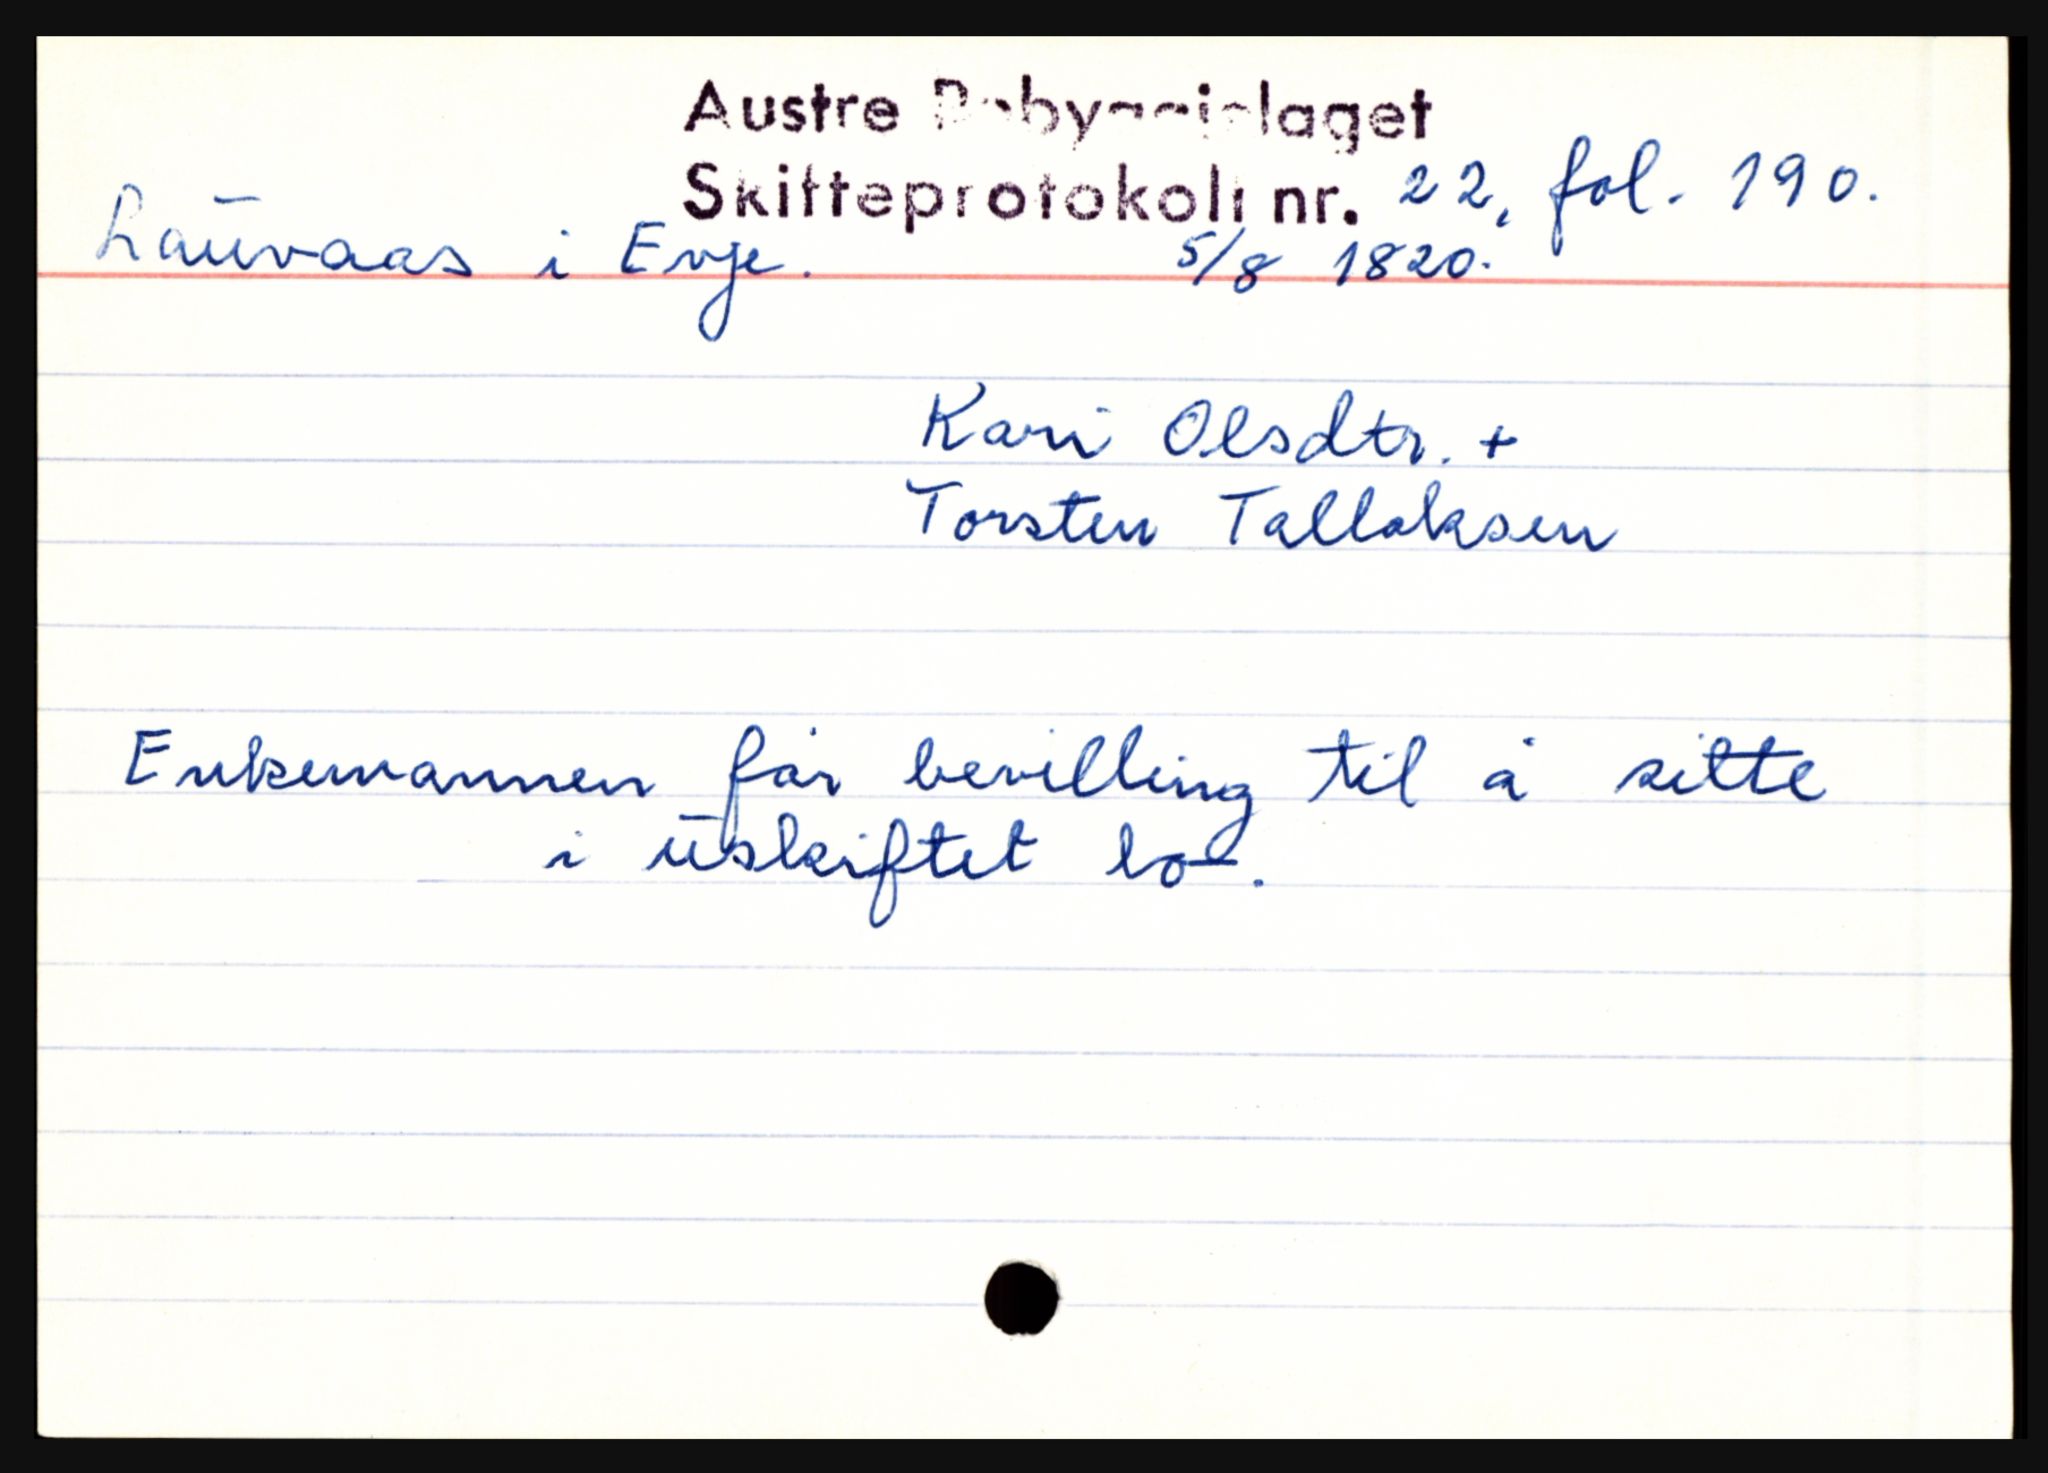 Austre Robyggjelaget
Skifteprotokoll nr. 22, fol. 190.
Lauvaas i Evje. 5/8 1820.
Kari Olsdtr. +
Torsten Tallaksen
Enkemannen får bevilling til å sitte
i uskiftet bo.